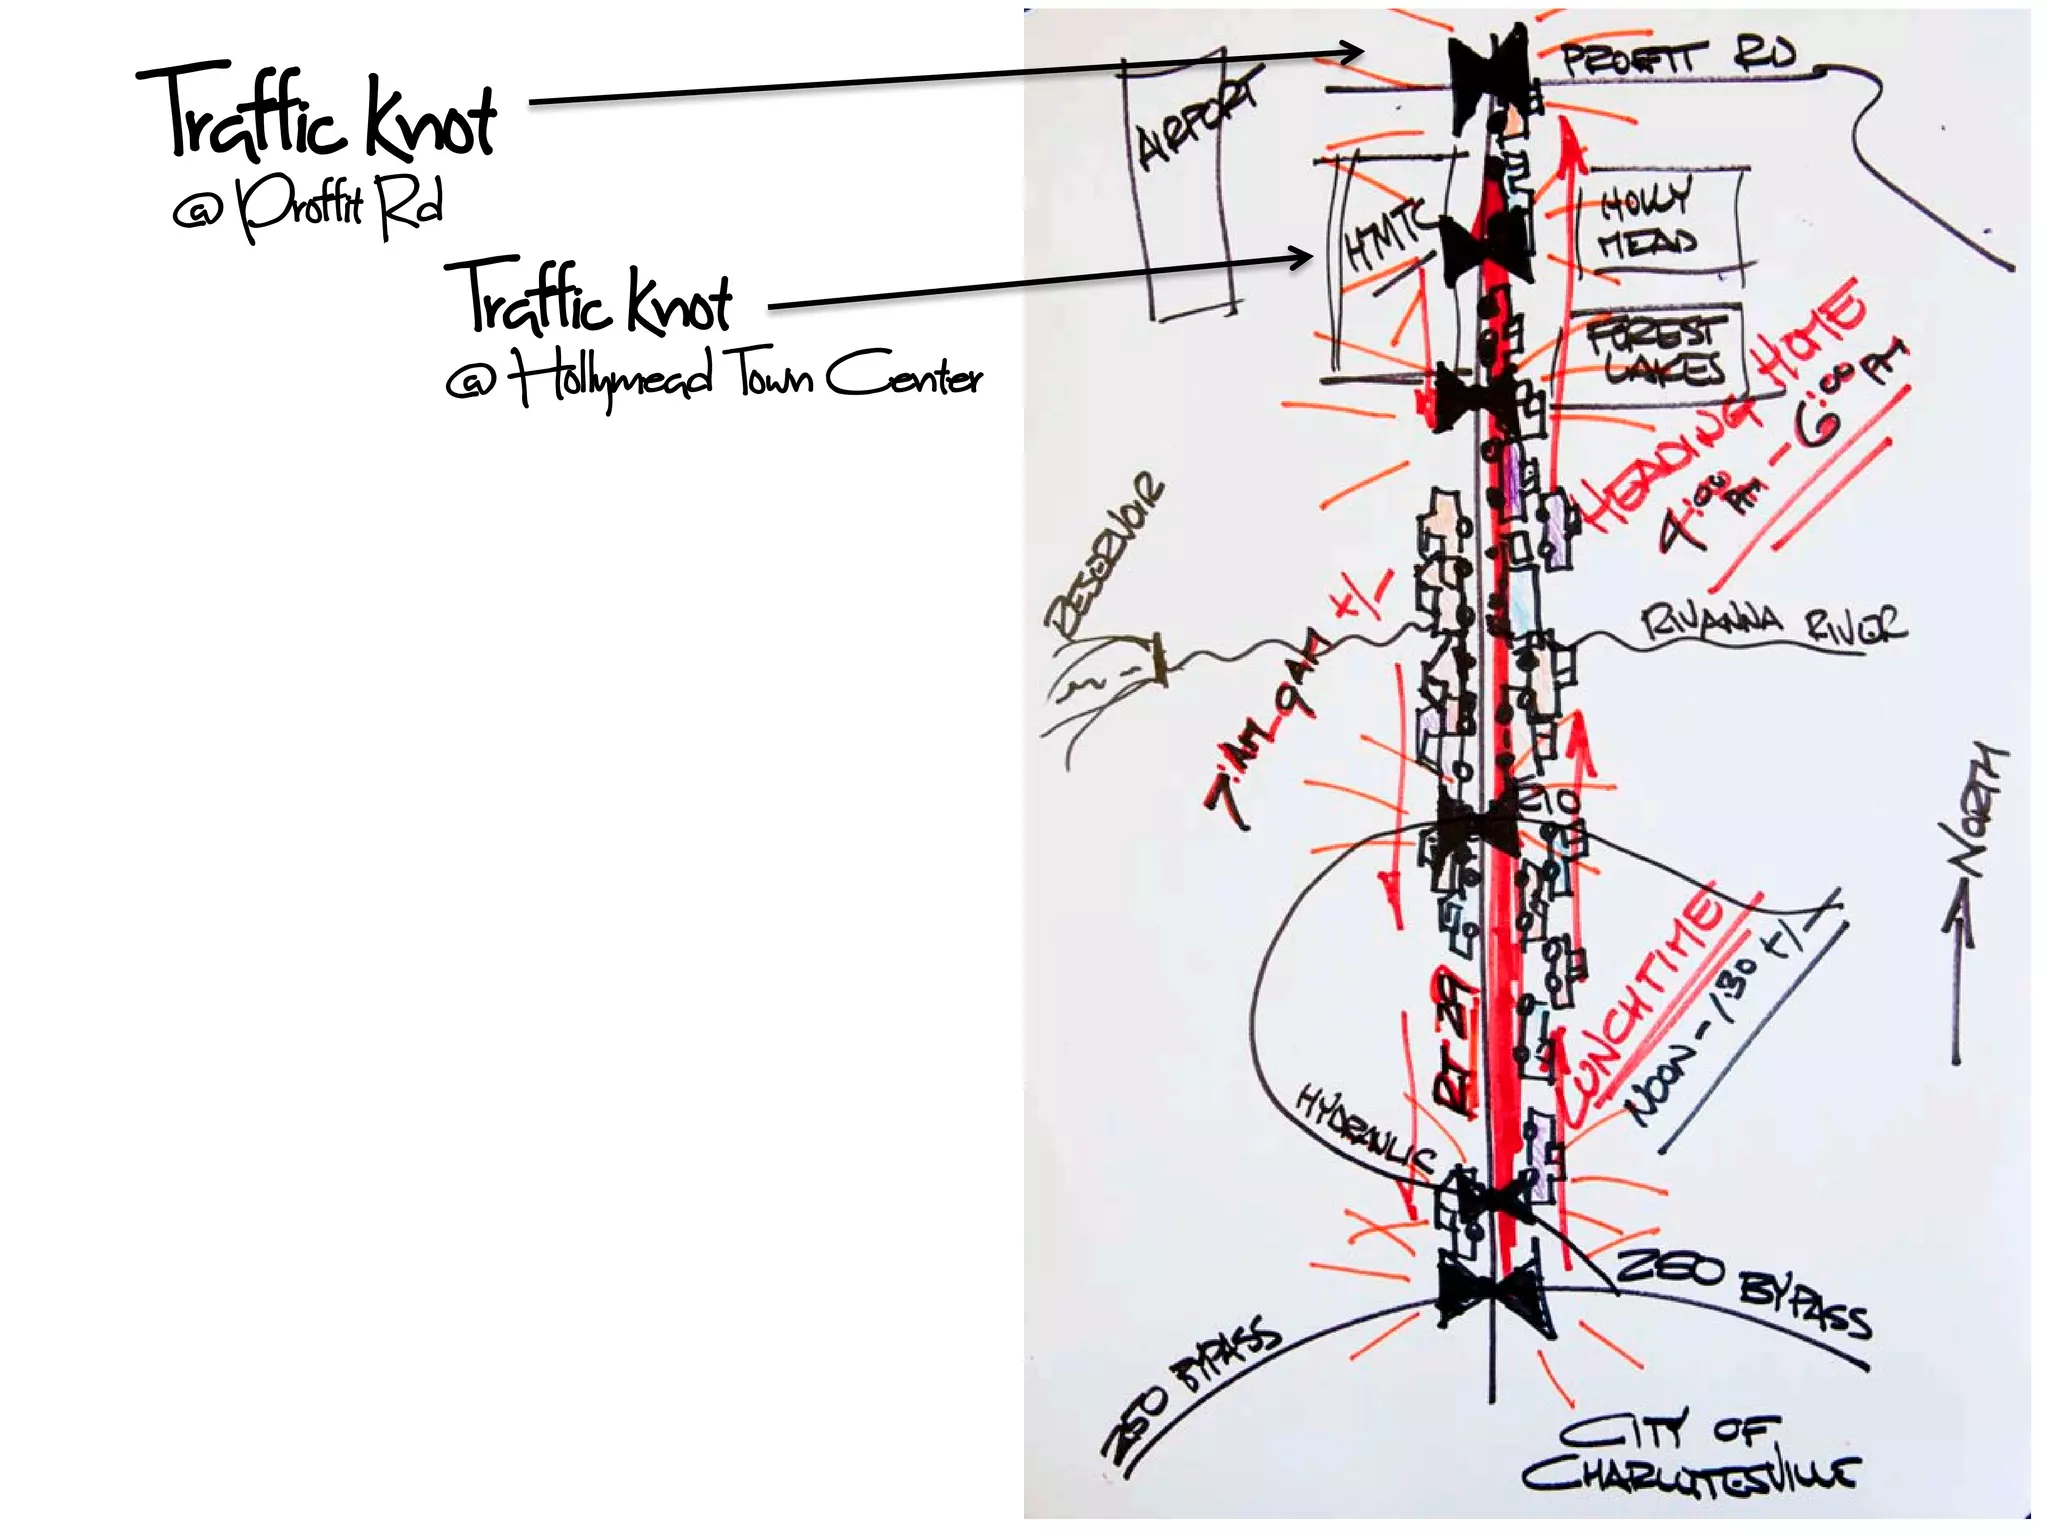 Traffic Knot
@ Proffit Rd
Traffic Knot
@ Hollymead Town Center
PROFFIT RD
AIRPORT
HMTC
HOLLY
MEAD
FOREST
LAKES
HEADING HOME
4:00 PM - 6:00 PM
RESERVOIR
+/-
7:AM - 9 AM
RIVANNA RIVER
NORTH
RIO
LUNCHTIME
NOON - 130 +/-
RT 29
HYDRAULIC
250 BYPASS
250 BYPASS
CITY OF
CHARLOTTESVILLE